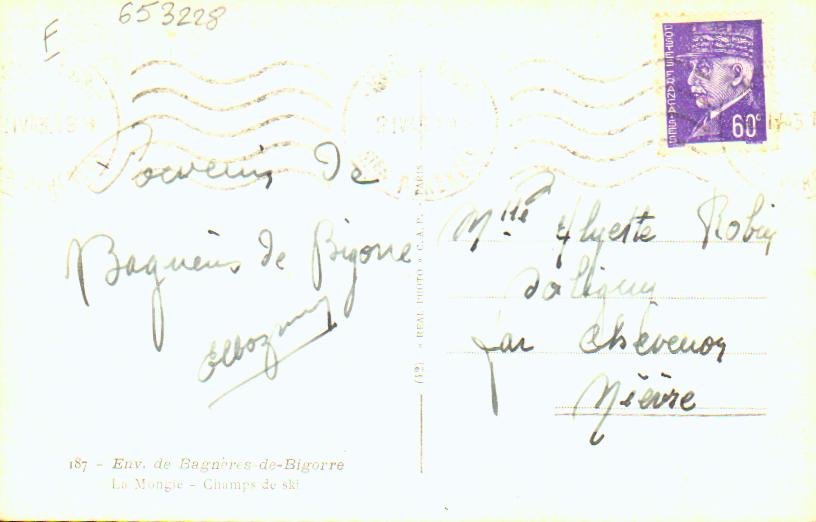 653228
F
POSTES FRANÇAISES
60c
Souvenir de
Bagnères de Bigorre
Mlle Robin
par Chevenon
Nièvre
(42) « REAL PHOTO » C.A.P. - PARIS
187 - Env. de Bagnères-de-Bigorre
La Mongie - Champs de ski